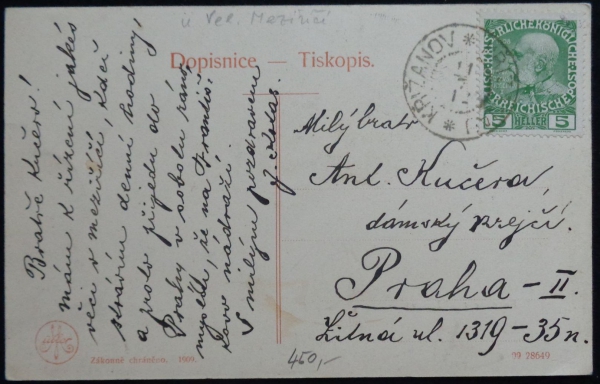 u Vel. Meziříčí
Dopisnice — Tiskopis.
KRŽANOV
KAIS. KÖNIGLICHE
ÖSTERREICHISCHE
5 HELLER 5
Bratře Kučero!
mám k řízení jakés
věci v Meziříčí, kdež
strávím denní hodiny,
a proto přijedu do
Prahy v sobotu ráno
myslím, že na Františ.
Jos. nádraží.
S milým pozdravem
Milý bratr
Ant. Kučera,
dámský krejčí.
Praha-II.
Žitná ul. 1319-35n.
Zákonně chráněno. 1909.
450,-
09 28649